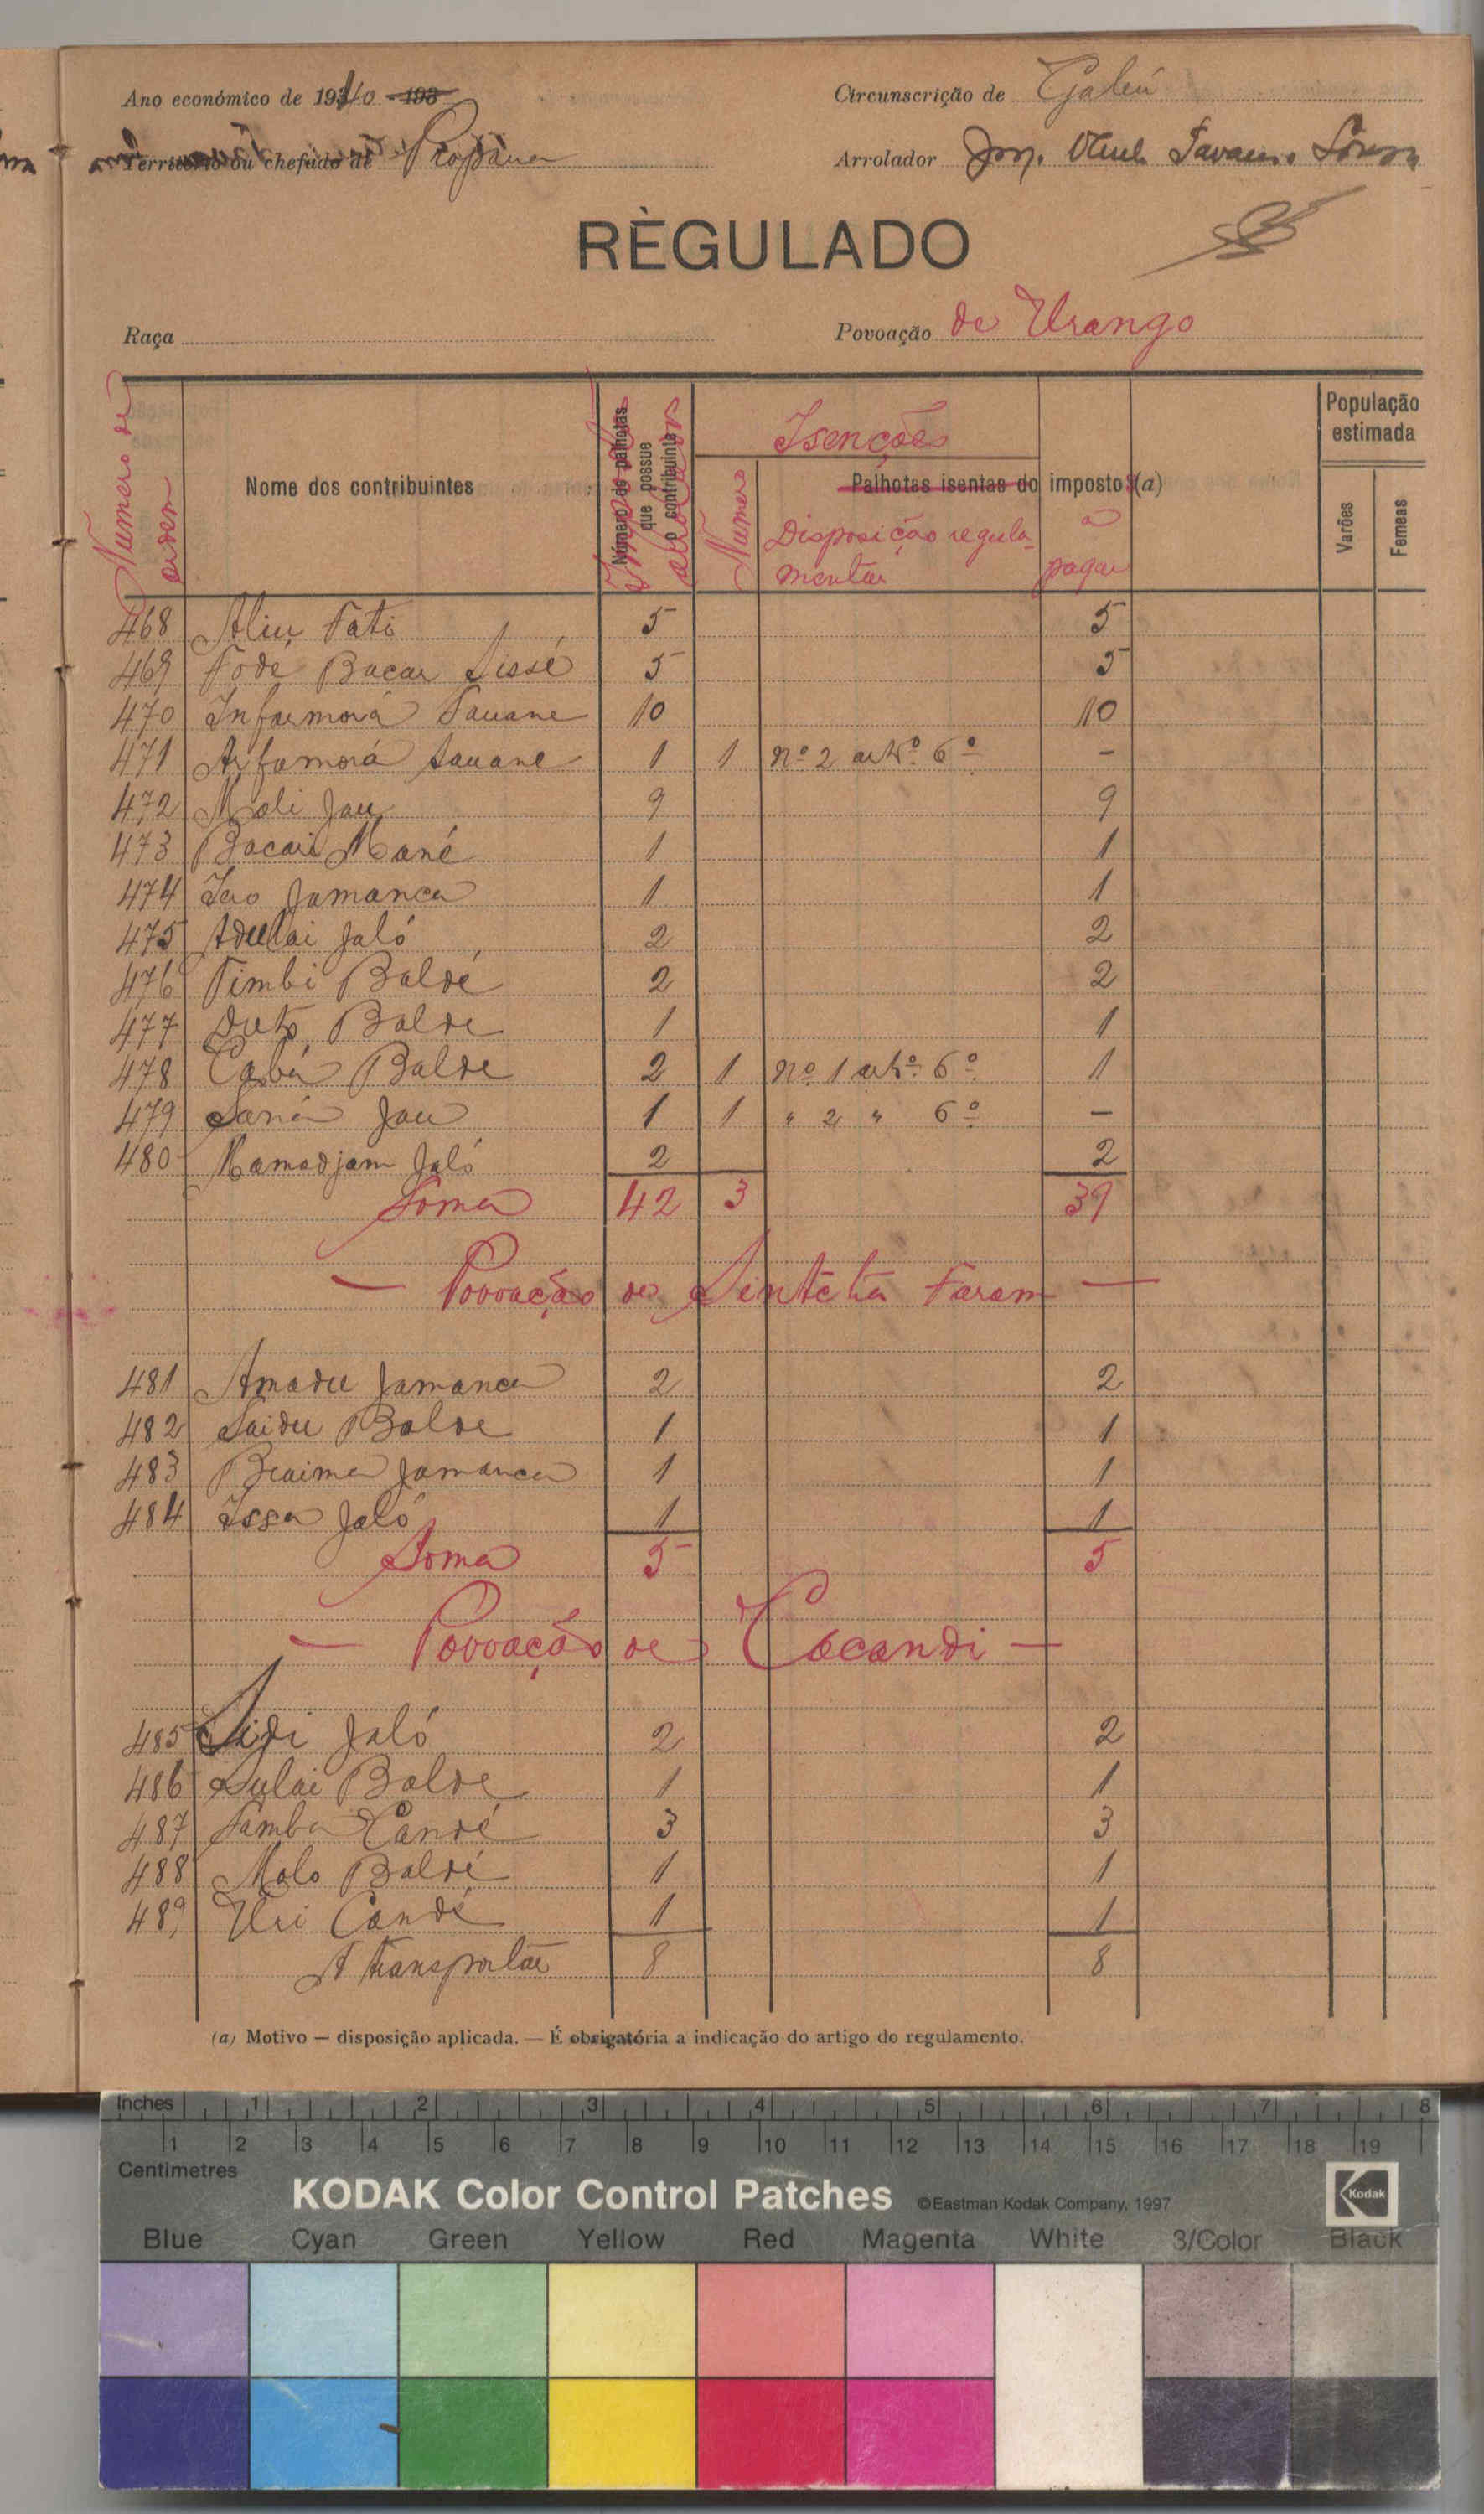 Ano económico de 1940 - 193
Circunscrição de Gabú
Território ou chefado de Propana
Arrolador
RÈGULADO
Raça
Povoação de Urango
Numero de ordem
Nome dos contribuintes
Número de palhotas que possue o contribuinte
Isenções
Numero
Palhotas isentas do imposto (a)
Disposição regula-
mentar
a
pagar
População estimada
Varões
Femeas
468 Aliu Fati 5 5
469 Fodé Bacar Sissé 5 5
470 Infarmorá Sauane 10 10
471 Arfamorá Sauane 1 1 nº 2 artº 6º -
472 Mali Jau 9 9
473 Bacari Mané 1 1
474 Iero Jamanca 1 1
475 Adulai Jaló 2 2
476 Timbi Baldé 2 2
477 Duto Balde 1 1
478 Cabá Balde 2 1 nº 1 artº 6º 1
479 Saná Jau 1 1 " 2 " 6º -
480 Mamadjam Jaló 2 2
Soma 42 3 39
— Povoação de Sintchã Faram —
481 Amadu Jamanca 2 2
482 Saidu Balde 1 1
483 Braima Jamanca 1 1
484 Issa Jaló 1 1
Soma 5 5
— Povoação de Cocandi —
485 Sidi Jaló 2 2
486 Sulai Balde 1 1
487 Samba Candé 3 3
488 Malo Baldé 1 1
489 Uri Candé 1 1
A transportar 8 8
(a) Motivo — disposição aplicada. — É obrigatória a indicação do artigo do regulamento.
Inches 1 2 3 4 5 6 7 8
1 2 3 4 5 6 7 8 9 10 11 12 13 14 15 16 17 18 19
Centimetres
KODAK Color Control Patches ©Eastman Kodak Company, 1997 Kodak
Blue Cyan Green Yellow Red Magenta White 3/Color Black